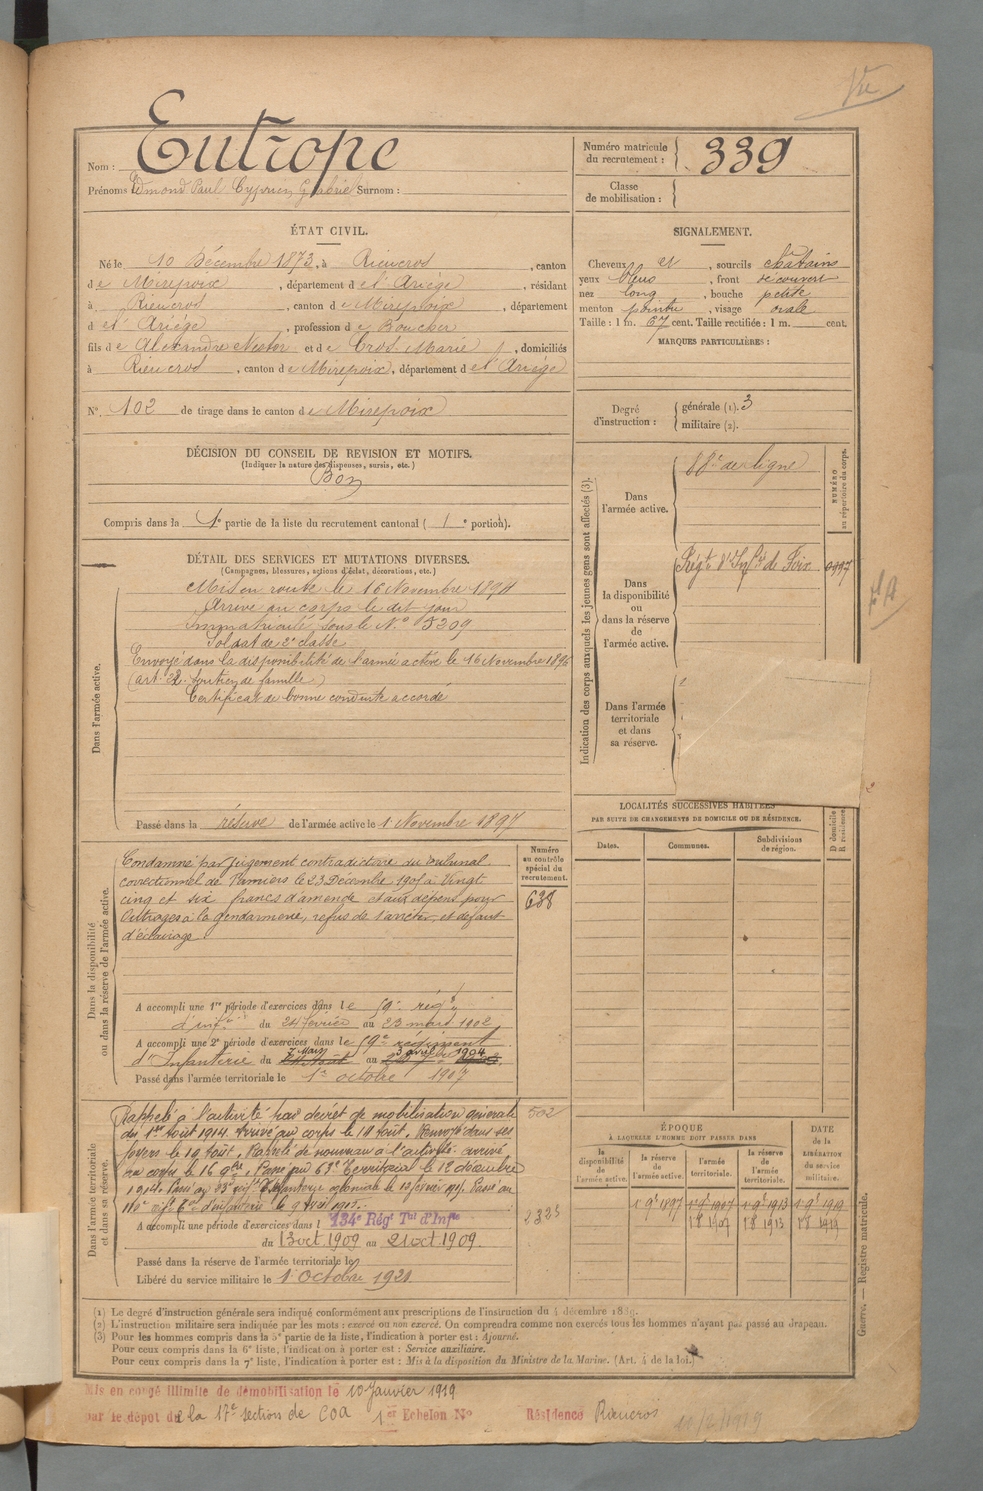 Vu
Nom : Eutrope
Prénoms Edmond Paul Cyprien Gabriel Surnom :
Numéro matricule du recrutement : 339
Classe de mobilisation :
ÉTAT CIVIL.
Né le 10 Décembre 1873, à Rieucros, canton
de Mirepoix, département de l'Ariège, résidant
à Rieucros, canton de Mirepoix, département
de l'Ariège, profession de Boucher
fils de Alexandre Nestor et de Cros Marie, domiciliés
à Rieucros, canton de Mirepoix, département de l'Ariège
N° 102 de tirage dans le canton de Mirepoix
SIGNALEMENT.
Cheveux et, sourcils châtains
yeux bleus, front découvert
nez long, bouche petite
menton pointu, visage ovale
Taille : 1 m. 67 cent. Taille rectifiée : 1 m. cent.
MARQUES PARTICULIÈRES :
Degré d'instruction : générale (1). 3
militaire (2).
DÉCISION DU CONSEIL DE REVISION ET MOTIFS.
(Indiquer la nature des dispenses, sursis, etc.)
Bon
Compris dans la 1e partie de la liste du recrutement cantonal ( 1e portion).
DÉTAIL DES SERVICES ET MUTATIONS DIVERSES.
(Campagnes, blessures, actions d'éclat, décorations, etc.)
Dans l'armée active.
Mis en route le 16 Novembre 1894
Arrivé au corps le dit jour
Immatriculé sous le N° 5209
Soldat de 2e classe
Envoyé dans la disponibilité de l'armée active le 16 Novembre 1896
(art. 22. Soutien de famille)
Certificat de bonne conduite accordé
Passé dans la réserve de l'armée active le 1 Novembre 1897
Indication des corps auxquels les jeunes gens sont affectés (3).
NUMÉRO au répertoire du corps.
Dans l'armée active.
de ligne
Dans la disponibilité ou dans la réserve de l'armée active.
Régt d'Infie de Foix
Dans l'armée territoriale et dans sa réserve.
LOCALITÉS SUCCESSIVES HABITÉES
PAR SUITE DE CHANGEMENTS DE DOMICILE OU DE RÉSIDENCE.
Dates. Communes. Subdivisions de région. D domicile R résidence
Dans la disponibilité ou dans la réserve de l'armée active.
Numéro au contrôle spécial du recrutement.
638
Condamné par jugement contradictoire du tribunal
correctionnel de Pamiers le 23 Décembre 1901 à Vingt
cinq et six francs d'amende et aux dépens pour
Outrages à la gendarmerie, refus de l'arrêter, et défaut
d'éclairage.
A accompli une 1re période d'exercices dans le 59e régt
d'infie du 24 février au 23 mars 1902
A accompli une 2e période d'exercices dans le 59e régiment
d'Infanterie du 7 Mars au 3 avril 1904
Passé dans l'armée territoriale le 1er octobre 1907
Dans l'armée territoriale et dans sa réserve.
Rappelé à l'activité par décret de mobilisation générale
du 1er Août 1914. Arrivé au corps le 14 Août. Renvoyé dans ses
foyers le 19 Août. Rappelé de nouveau à l'activité. arrivé
au corps le 16 9bre. Passé au Territorial le 12 décembre
1914. Passé au régt d'Infanterie coloniale le 12 février 1915. Passé au
d'infanterie le 9 Avril 1915.
502
2323
A accompli une période d'exercices dans l 134e Régt Tal d'Infie
du 13 oct 1909 au 21 oct 1909.
Passé dans la réserve de l'armée territoriale le
Libéré du service militaire le 1 Octobre 1921
ÉPOQUE
À LAQUELLE L'HOMME DOIT PASSER DANS
la disponibilité de l'armée active. la réserve de l'armée active. l'armée territoriale. la réserve de l'armée territoriale.
DATE de la LIBÉRATION du service militaire.
1 9e 1897 1 9e 1907 1 9e 1913 1 9e 1919
1 8 1907 1 8 1913 1 8 1919
Guerre. — Registre matricule.
(1) Le degré d'instruction générale sera indiqué conformément aux prescriptions de l'instruction du 4 décembre 1889.
(2) L'instruction militaire sera indiquée par les mots : exercé ou non exercé. On comprendra comme non exercés tous les hommes n'ayant pas passé au drapeau.
(3) Pour les hommes compris dans la 5e partie de la liste, l'indication à porter est : Ajourné.
Pour ceux compris dans la 6e liste, l'indication à porter est : Service auxiliaire.
Pour ceux compris dans la 7e liste, l'indication à porter est : Mis à la disposition du Ministre de la Marine. (Art. 4 de la loi.)
Mis en congé illimité de démobilisation le 10 Janvier 1919
par le dépot de la 17e section de COA 1er Echelon N° Résidence Rieucros